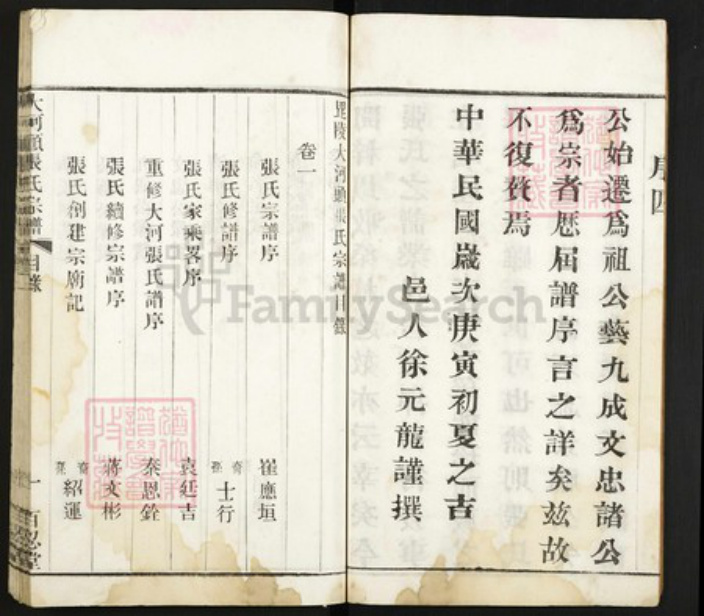 序四
公始遷爲祖公藝九成文忠諸公
爲宗者歷屆譜序言之詳矣茲故
不復贅焉
中華民國歲次庚寅初夏之吉
邑人徐元龍謹撰
毘陵大河頭張氏宗譜目錄
卷一
張氏宗譜序 崔應垣
張氏修譜序 裔孫士行
張氏家乘畧序 袁延吉
重修大河張氏譜序 秦恩銓
張氏續修宗譜序 蔣文彬
張氏創建宗廟記 裔孫紹運
大河頭張氏宗譜 目錄 一 百忍堂
FamilySearch